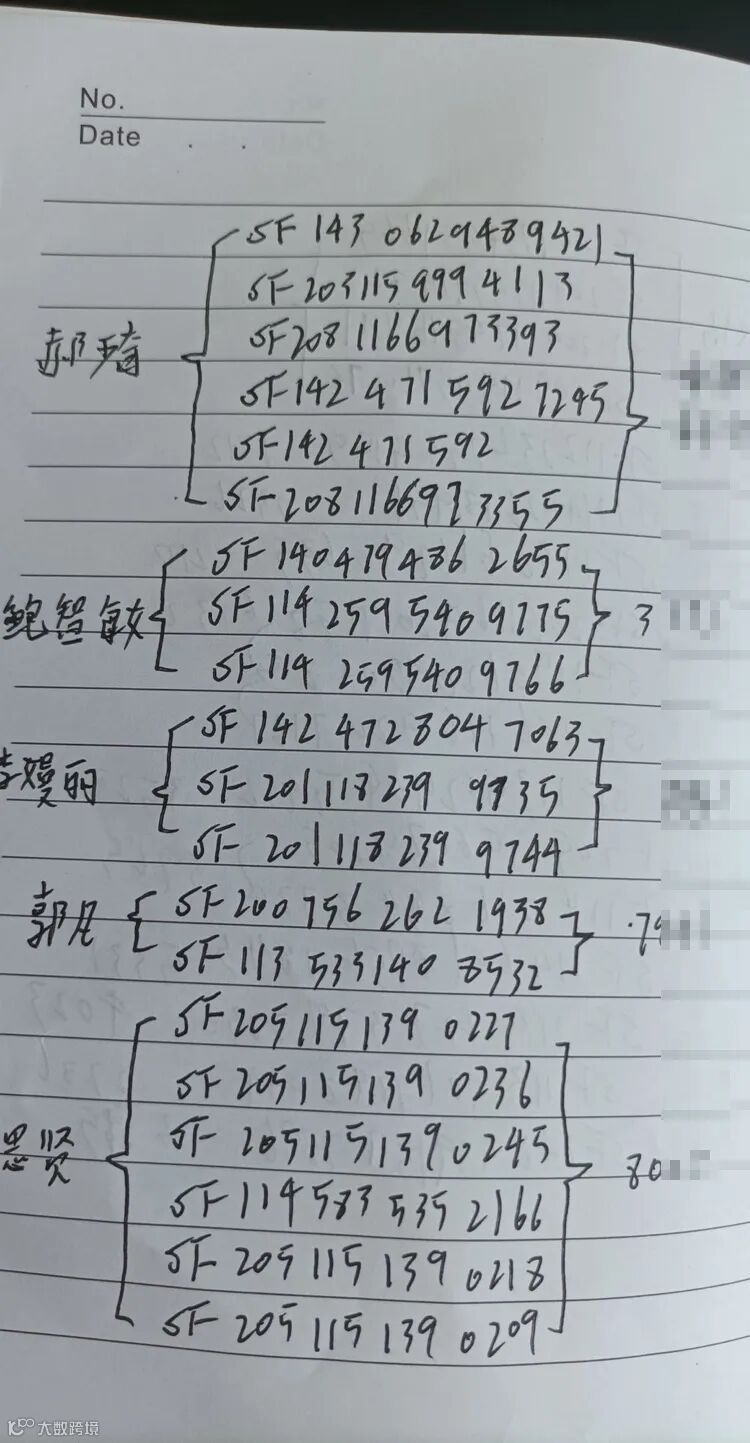 No.
Date . .
SF 143 0629489421
SF 203115 999 4113
SF208 1166973393
郝琦
SF142 471 592 7245
SF142 471592
SF 208116697 3355
SF 140479486 2655
鲍智敏
SF 114 259 5409775
3
SF 114 2595409766
SF 142 472804 7063
李嫚丽
SF 201118 239 9735
SF 201118 239 9744
郭凡
SF200 756 262 1938
.79
SF 113 533140 8532
SF 205 115 139 0227
SF 205 115 139 0236
思贤
SF 205115 1390245
80
SF 114 583 535 2166
SF 205 115 139 0218
SF 205 115 139 0209
大数跨境